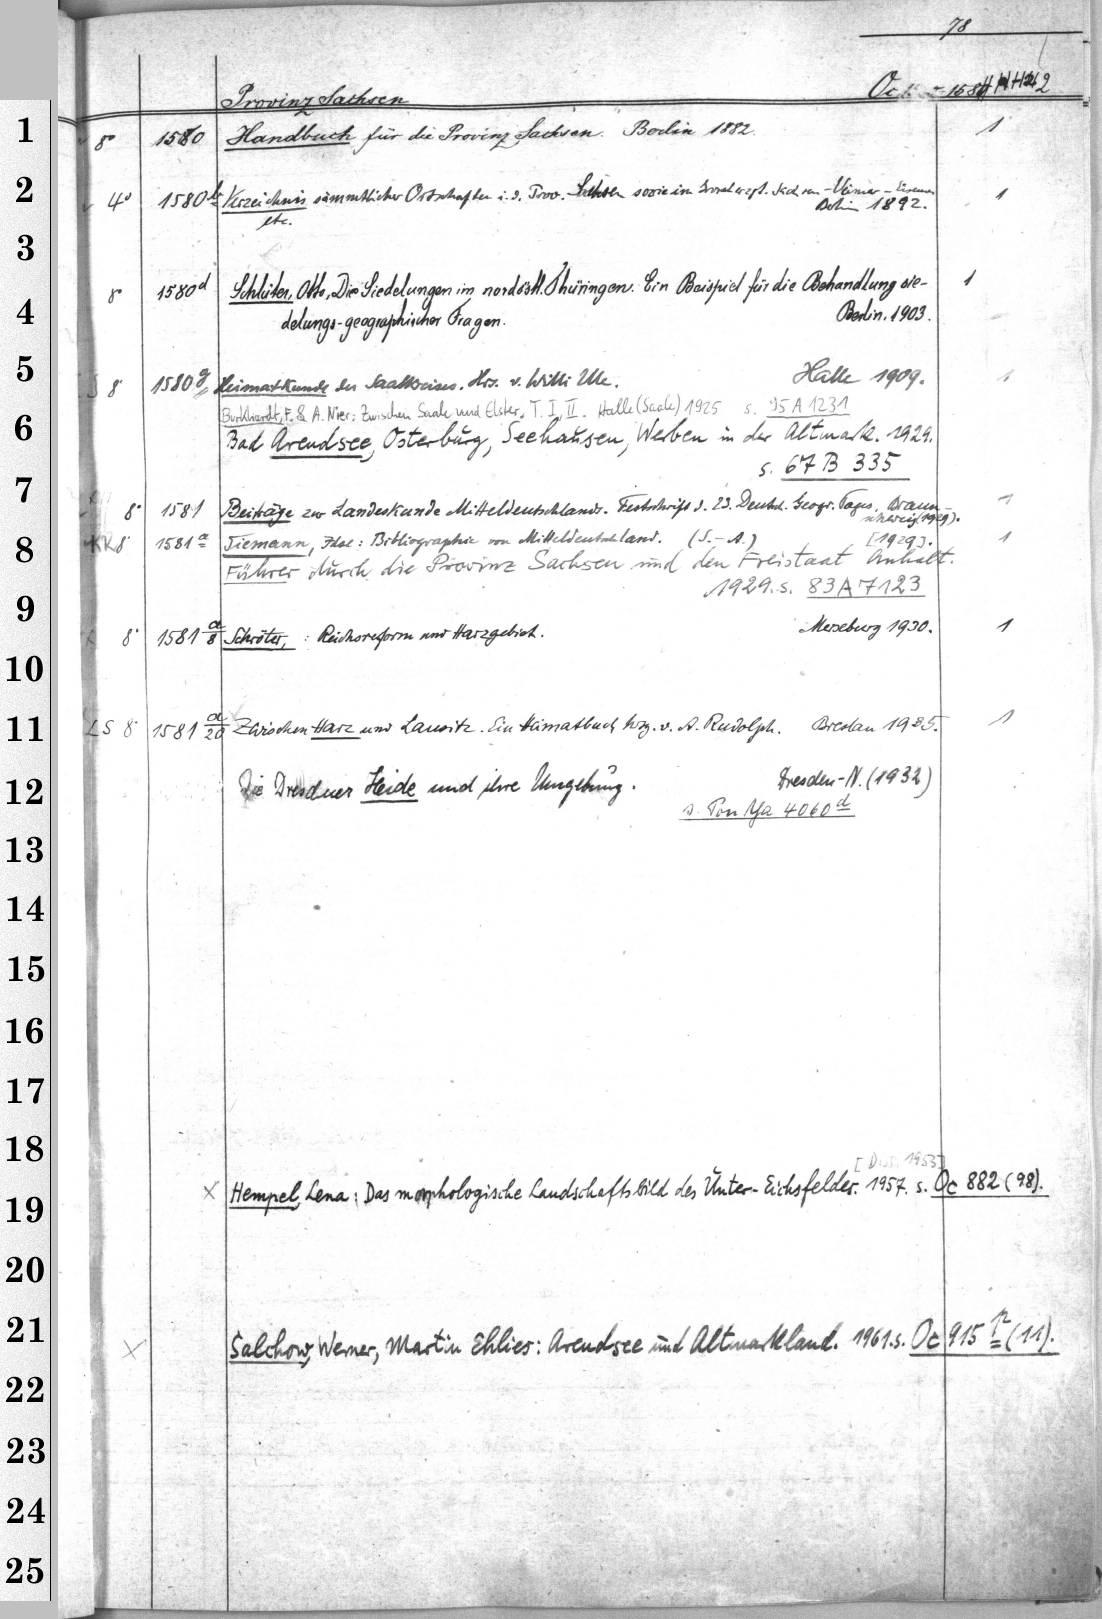 78
Provinz Sachsen Oc
1 8° 1580 Handbuch für die Provinz Sachsen. Berlin 1882. 1
2 4° 1580b Verzeichnis sämmtlicher Ortschaften i. d. Prov. Sachsen sowie im Weimar - 1
etc. Berlin 1892.
3
8° 1580d Schlüter, Otto, Die Siedelungen im nordöstl. Thüringen. Ein Beispiel für die Behandlung sie- 1
4 delungs-geographischer Fragen. Berlin. 1903.
5 S 8° 1580g Heimatkunde des Saalkreises. Hrs. v. Willi Ule. Halle 1909. 1
Burkhardt, F. & A. Nier: Zwischen Saale und Elster. T. I, II. Halle (Saale) 1925 s. 95 A 1231
6 Bad Arendsee, Osterburg, Seehausen, Werben in der Altmark. 1929.
s. 67 B 335
7 8° 1581 Beiträge zur Landeskunde Mitteldeutschlands. Festschrift d. 23. Deutsch. Geogr. Tages, Braun- 1
schweig (1929).
8 KK 8° 1581a Tiemann, Ilse: Bibliographie von Mitteldeutschland. (S.-A.) [1929]. 1
Führer durch die Provinz Sachsen und den Freistaat Anhalt.
9 1929. s. 83 A 7123
8° 1581 a/8 Schröter, : Reichsreform und Harzgebiet. Merseburg 1930. 1
10
11 LS 8° 1581 a/20 Zwischen Harz und Lausitz. Ein Heimatbuch hrsg. v. A. Rudolph. Breslau 1925. 1
12 Die Dresdner Heide und ihre Umgebung. Dresden-N. (1932)
s. Pon Ya 4060d
13
14
15
16
17
18
[Diss. 1953]
19 x Hempel, Lena: Das morphologische Landschaftsbild des Unter-Eichsfeldes. 1957. s. Oc 882 (98).
20
21 x Salchow, Werner, Martin Ehlies: Arendsee und Altmarkland. 1961. s. Oc 915 (11).
22
23
24
25